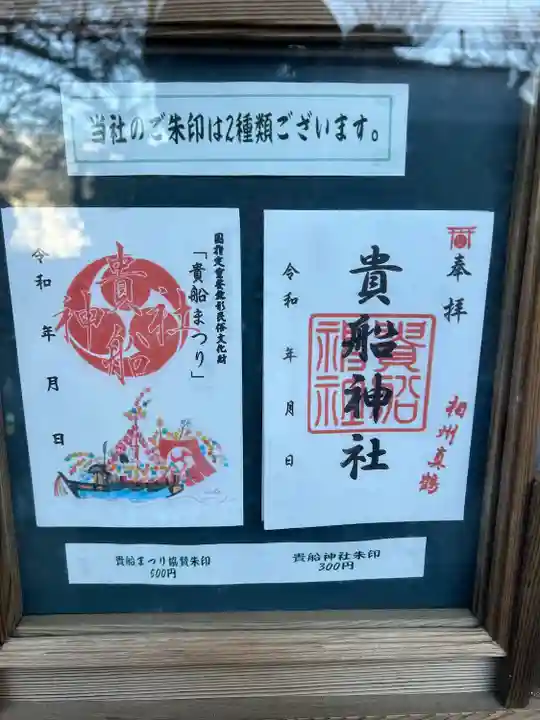 当社のご朱印は2種類ございます。
国指定重要無形民俗文化財
「貴船まつり」
貴船
神社
令和 年 月 日
奉拝
相州真鶴
貴船神社
貴船
神社
令和 年 月 日
貴船まつり協賛朱印
500円
貴船神社朱印
300円